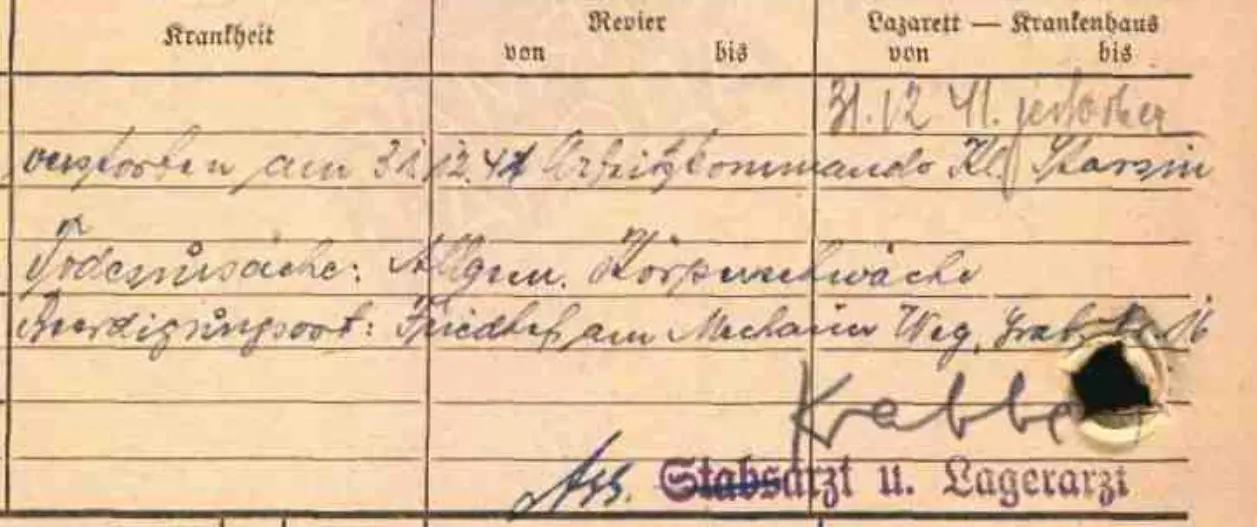 Krankheit Revier Lazarett — Krankenhaus
von bis von bis
31.12 41. gestorben
verstorben am 31.12.41 Arbeitskommando Kl. Starsin
Todesursache: Allgem. Körperschwäche
Beerdigungsort: Friedhof am Weg, Grab Nr. 16
Krabbe
Ass. Stabsarzt u. Lagerarzt